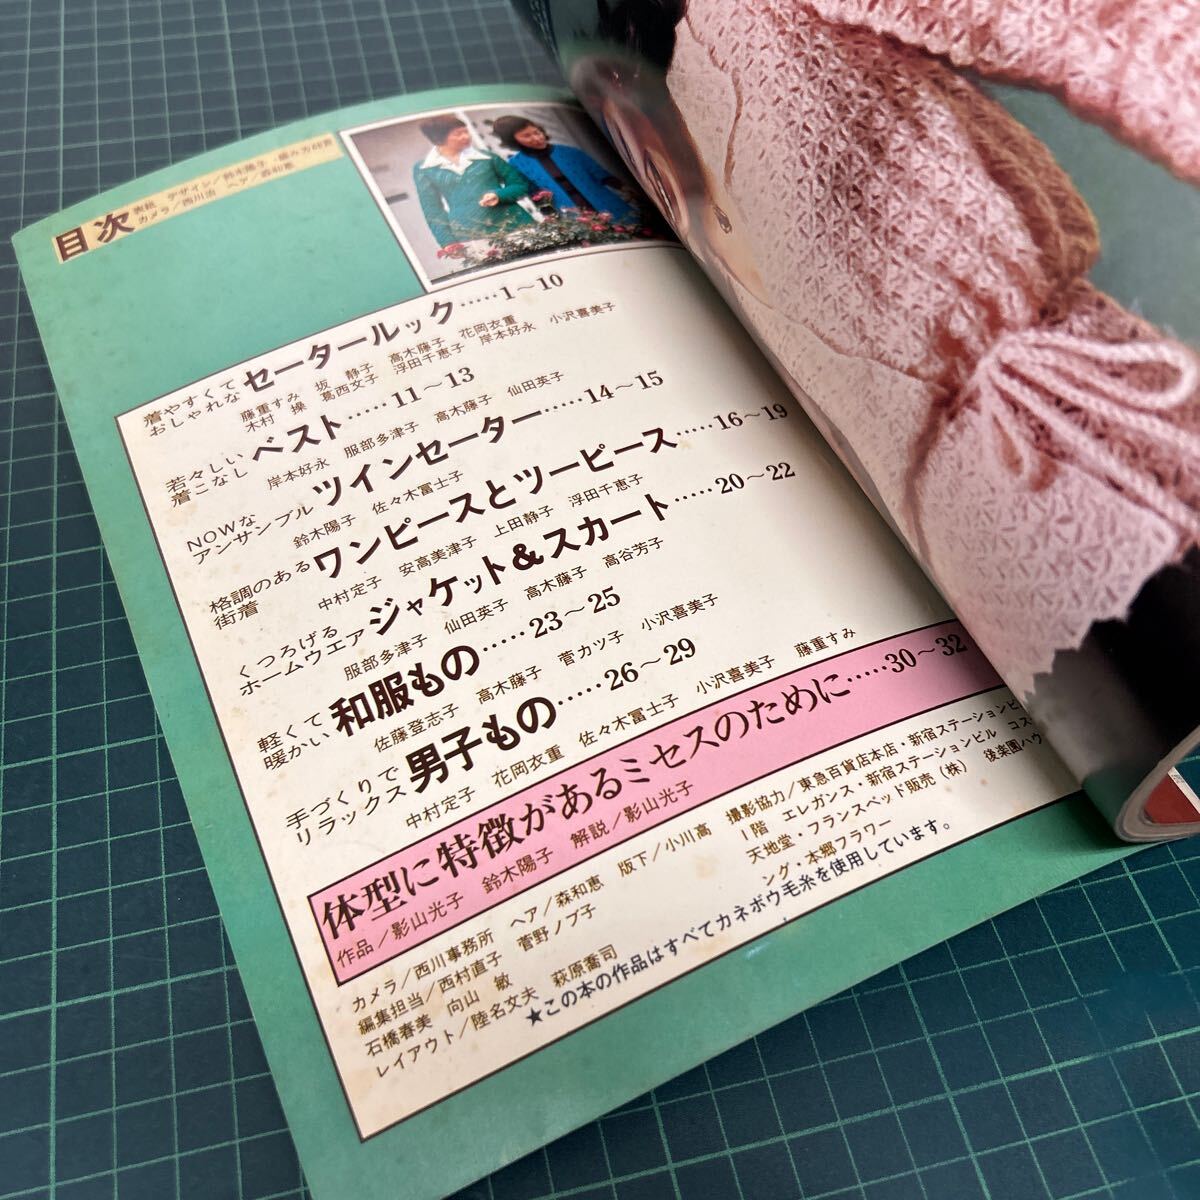 目次
表紙 デザイン/鈴木陽子・編み方65頁
カメラ/西川治 ヘア/森和恵
着やすくて
おしゃれな
セータールック……1〜10
藤重すみ 坂 静子 高木藤子 花岡衣重
木村 操 葛西文子 浮田千恵子 岸本好永 小沢喜美子
若々しい
着こなし
ベスト……11〜13
岸本好永 服部多津子 高木藤子 仙田英子
NOWな
アンサンブル
ツインセーター……14〜15
鈴木陽子 佐々木冨士子
格調のある
街着
ワンピースとツーピース……16〜19
中村定子 安高美津子 上田静子 浮田千恵子
くつろげる
ホームウエア
ジャケット&スカート……20〜22
服部多津子 仙田英子 高木藤子 高谷芳子
軽くて
暖かい
和服もの……23〜25
佐藤登志子 高木藤子 菅カツ子 小沢喜美子
手づくりで
リラックス
男子もの……26〜29
中村定子 花岡衣重 佐々木冨士子 小沢喜美子 藤重すみ
体型に特徴があるミセスのために……30〜32
作品/影山光子 鈴木陽子 解説/影山光子
カメラ/西川事務所 ヘア/森和恵 版下/小川高
編集担当/西村直子 菅野ノブ子
石橋春美 向山 敏
レイアウト/陸名文夫 萩原喬司
撮影協力/東急百貨店本店・新宿ステーションビ
1階 エレガンス・新宿ステーションビル コス
天地堂・フランスベッド販売(株) 後楽園ハウ
ング・本郷フラワー
★この本の作品はすべてカネボウ毛糸を使用しています。